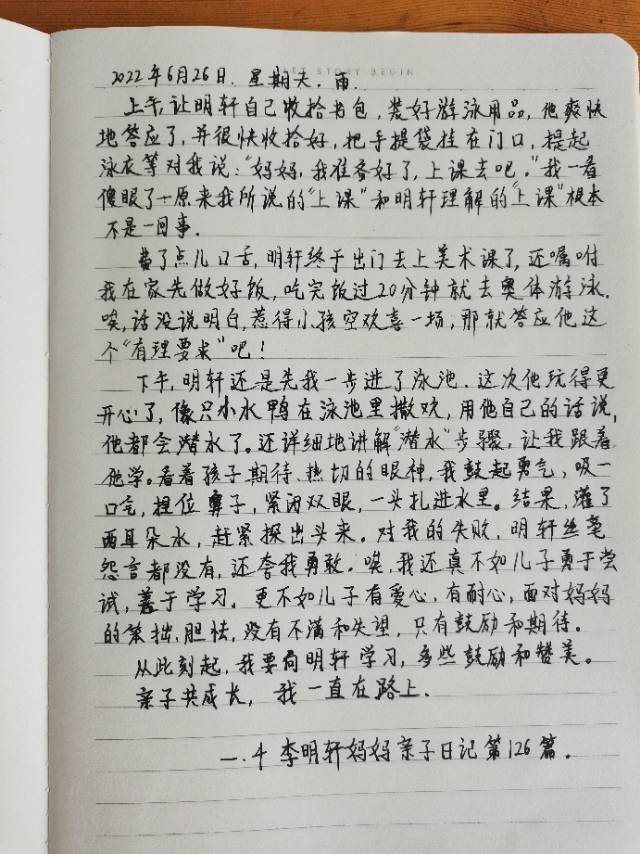 LET STORY BEGIN
2022年6月26日.星期天.雨.
上午,让明轩自己收拾书包,装好游泳用品,他爽快
地答应了,并很快收拾好,把手提袋挂在门口,提起
泳衣等对我说:“妈妈,我准备好了,上课去吧。”我一看
傻眼了—原来我所说的“上课”和明轩理解的“上课”根本
不是一回事。
费了点儿口舌,明轩终于出门去上美术课了,还嘱咐
我在家先做好饭,吃完饭过20分钟就去奥体游泳.
唉,话没说明白,惹得小孩空欢喜一场,那就答应他这
个“有理要求”吧!
下午,明轩还是先我一步进了泳池.这次他玩得更
开心了,像只小水鸭在泳池里撒欢,用他自己的话说,
他都会潜水了。还详细地讲解“潜水”步骤,让我跟着
他学。看着孩子期待、热切的眼神,我鼓起勇气,吸一
口气,捏位鼻子,紧闭双眼,一头扎进水里。结果,灌了
两耳朵水,赶紧探出头来。对我的失败,明轩丝毫
怨言都没有,还夸我勇敢。唉,我还真不如儿子勇于尝
试,善于学习。更不如儿子有爱心,有耐心,面对妈妈
的笨拙、胆怯,没有不满和失望,只有鼓励和期待。
从此刻起,我要向明轩学习,多些鼓励和赞美。
亲子共成长,我一直在路上.
一.4 李明轩妈妈亲子日记第126篇.